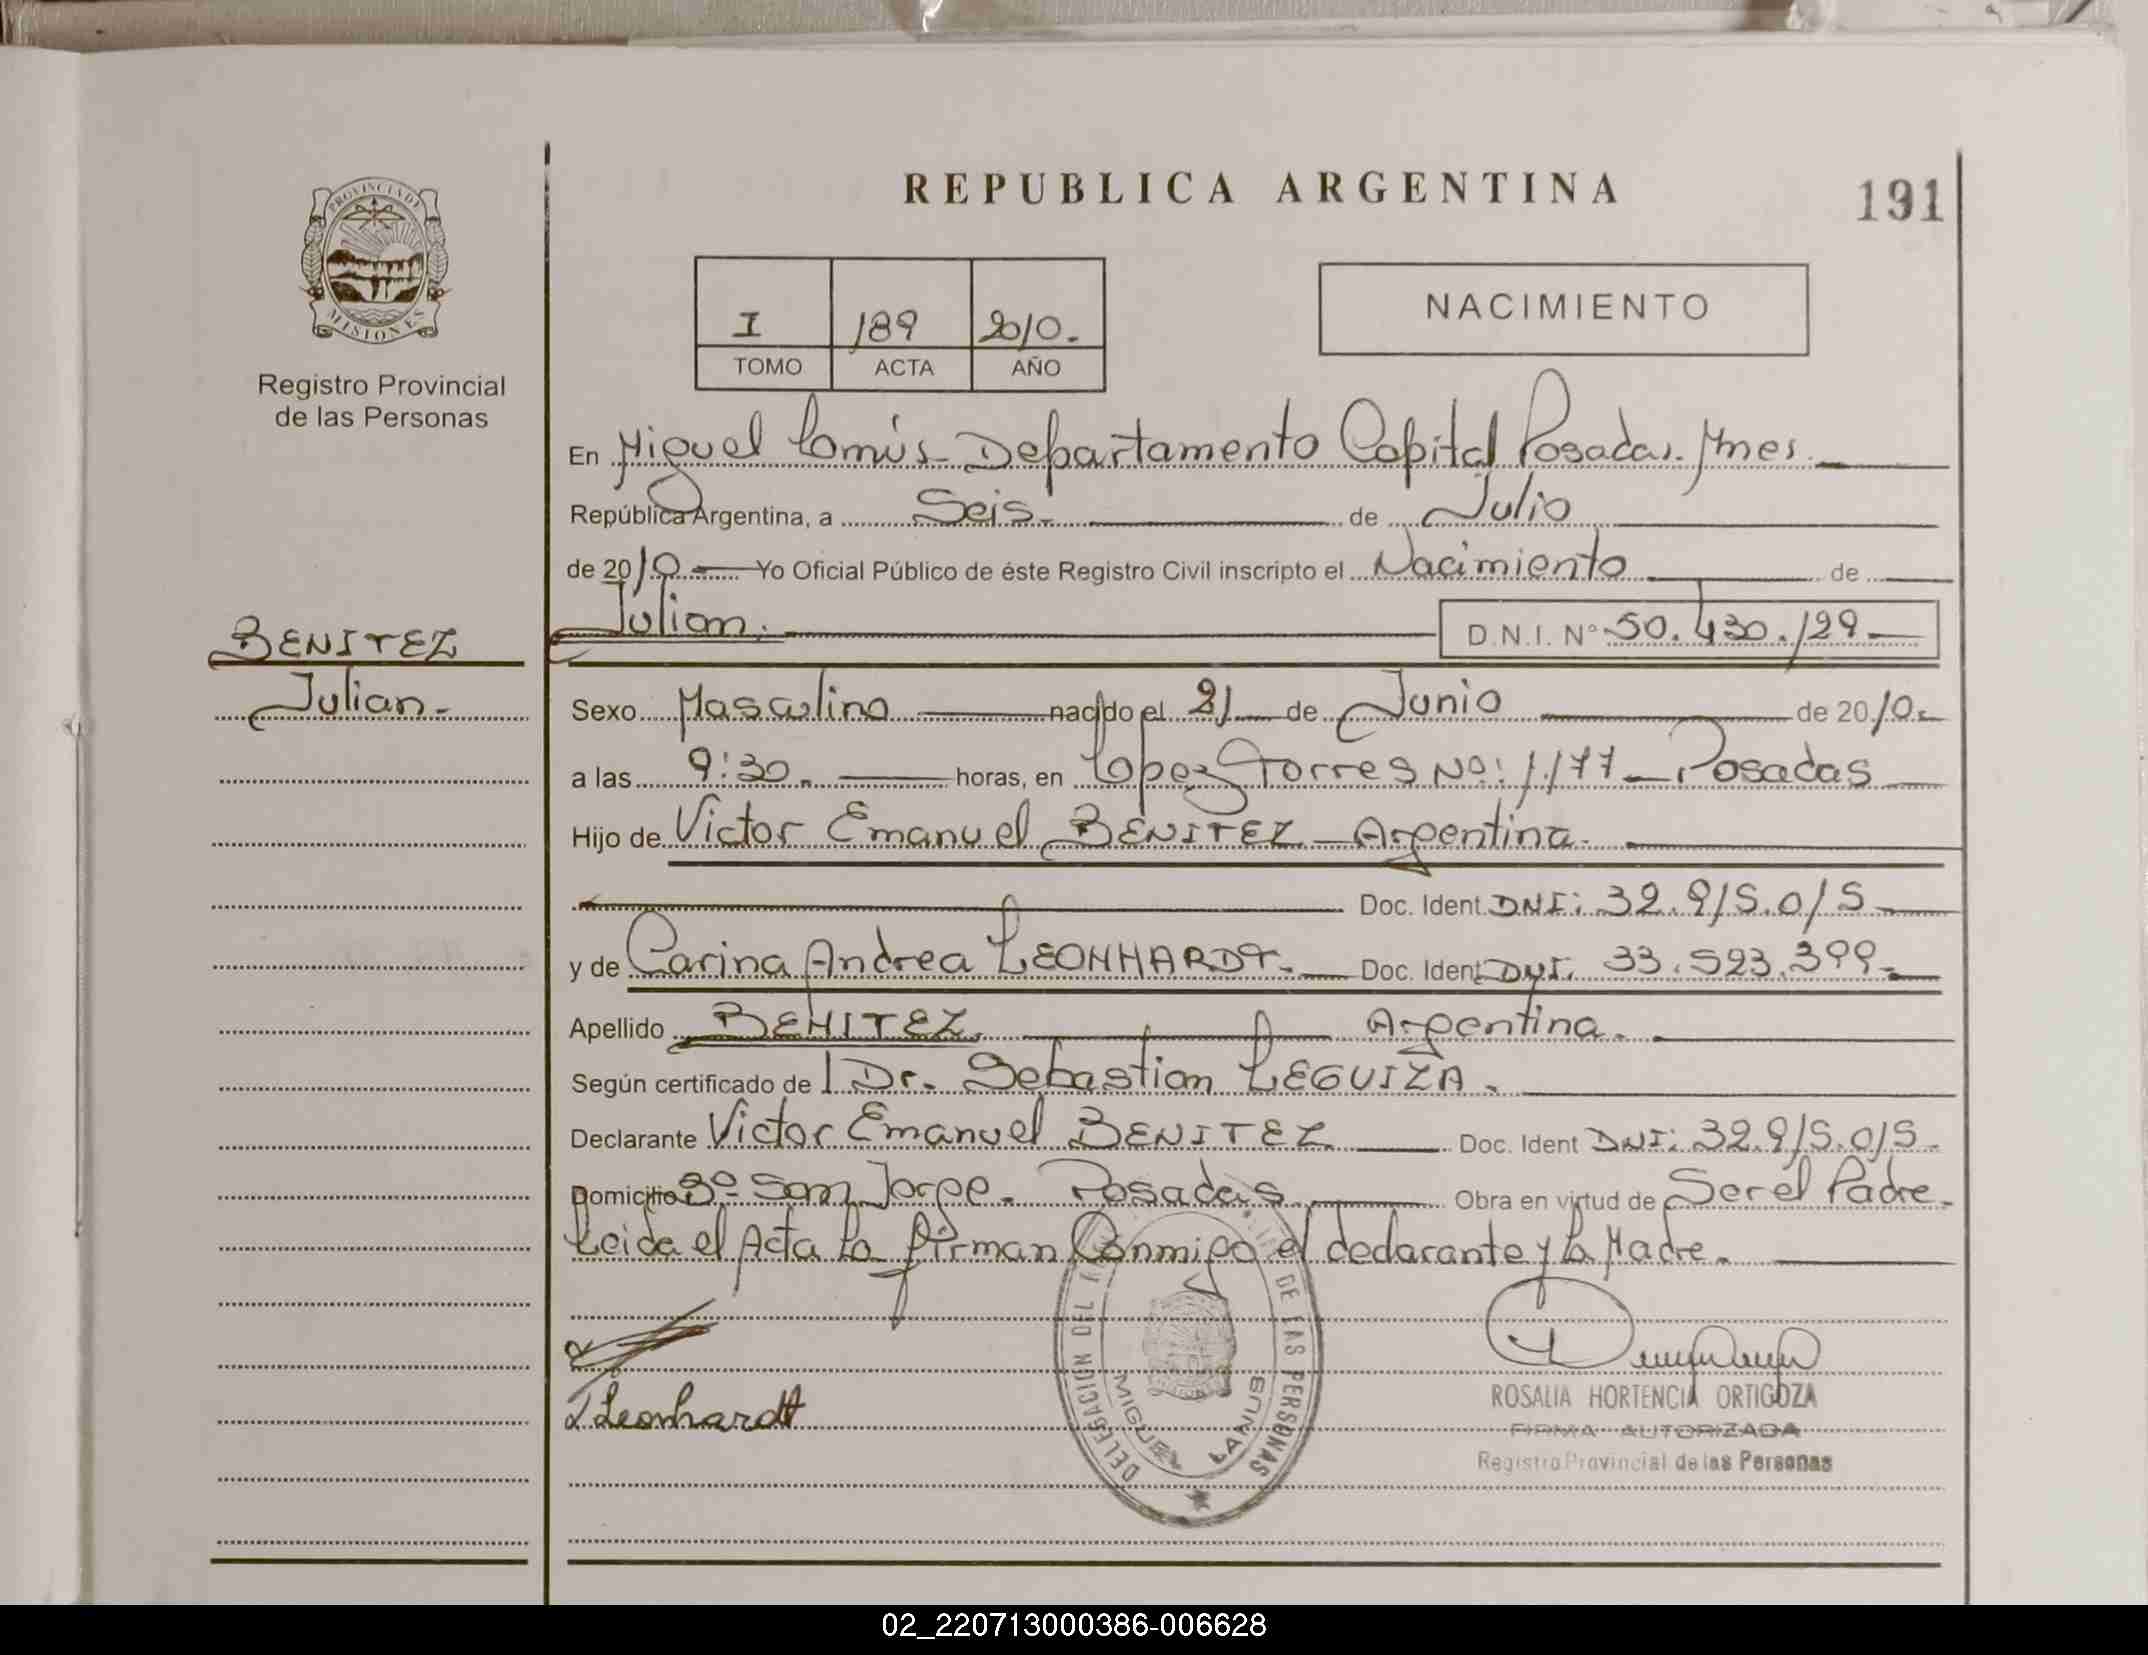 PROVINCIA DE
MISIONES
Registro Provincial
de las Personas
BENITEZ
Julian.-
REPUBLICA ARGENTINA
191
I 189 2010.
TOMO ACTA AÑO
NACIMIENTO
En Miguel Lanús - Departamento Capital Posadas. Mnes.
República Argentina, a Seis.- de Julio
de 2010 Yo Oficial Público de éste Registro Civil inscripto el Nacimiento de
Julian. D.N.I. Nº 50.430.129
Sexo Masculino nacido el 21 de Junio de 2010.
a las 9:30. horas, en Lopez Torres Nº: 1.177 - Posadas
Hijo de Victor Emanuel BENITEZ - Argentina.
Doc. Ident. DNI: 32.915.015
y de Carina Andrea LEONHARDT.- Doc. Ident DNI. 33.523.399.
Apellido BENITEZ. Argentina.
Según certificado de Dr. Sebastian LEGUIZA.
Declarante Victor Emanuel BENITEZ Doc. Ident DNI: 32.915.015
Domicilio Bº San Jorge. Posadas Obra en virtud de Ser el Padre.
Leida el Acta la firman Conmigo el declarante y la Madre.
Leonhardt
DELEGACION DEL DE LAS PERSONAS
MIGUEL LANUS
ROSALIA HORTENCIA ORTIGOZA
FIRMA AUTORIZADA
Registro Provincial de las Personas
02_220713000386-006628